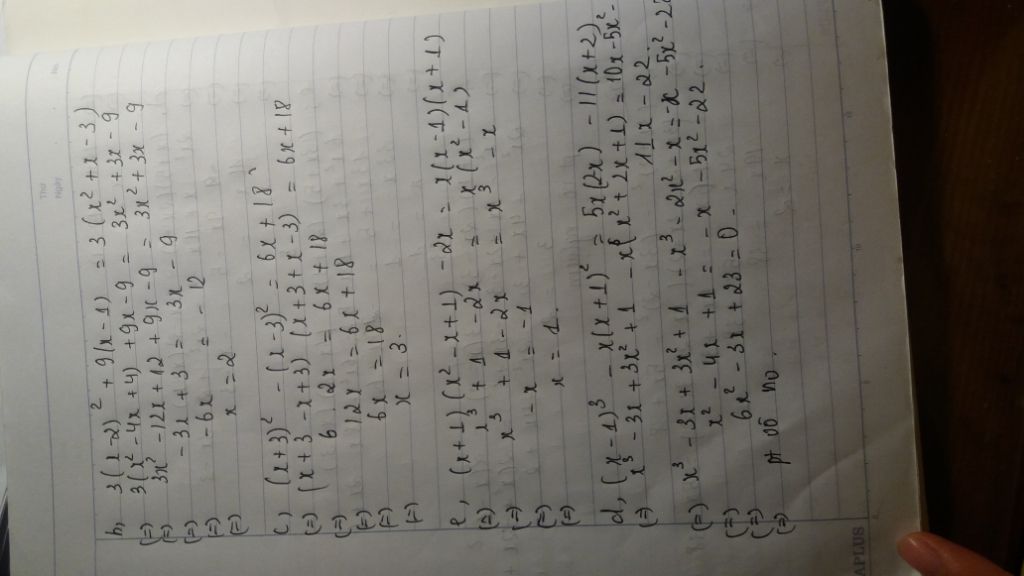 Thứ
Ngày
No.
b, 3(x-2)² + 9(x-1) = 3(x²+x-3)
(=) 3(x²-4x+4) + 9x-9 = 3x²+3x-9
(=) 3x²-12x+12+9x-9 = 3x²+3x-9
(=) -3x+3 = 3x-9
(=) -6x = -12
(=) x=2
c, (x+3)² - (x-3)² = 6x+18
(=) (x+3-x+3)(x+3+x-3) = 6x+18
(=) 6 2x = 6x+18
(=) 12x = 6x+18
(=) 6x = 18
(=) x = 3.
e, (x+1)(x²-x+1) -2x = x(x-1)(x+1)
(=) x³+1 -2x = x(x²-1)
(=) x³+1-2x = x³-x
(=) -x = -1
(=) x = 1.
d, (x-1)³ - x(x+1)² = 5x(2x) - 11(x+2)
(=) x³-3x+3x²+1 -x(x²+2x+1) = 10x-5x²-
11x-22
(=) x³-3x+3x²+1-x³-2x²-x = -x-5x²-22
(=) x²-4x+1 = -x-5x²-22.
(=) 6x²-3x+23=0.
(=) pt vô no.
APLUS